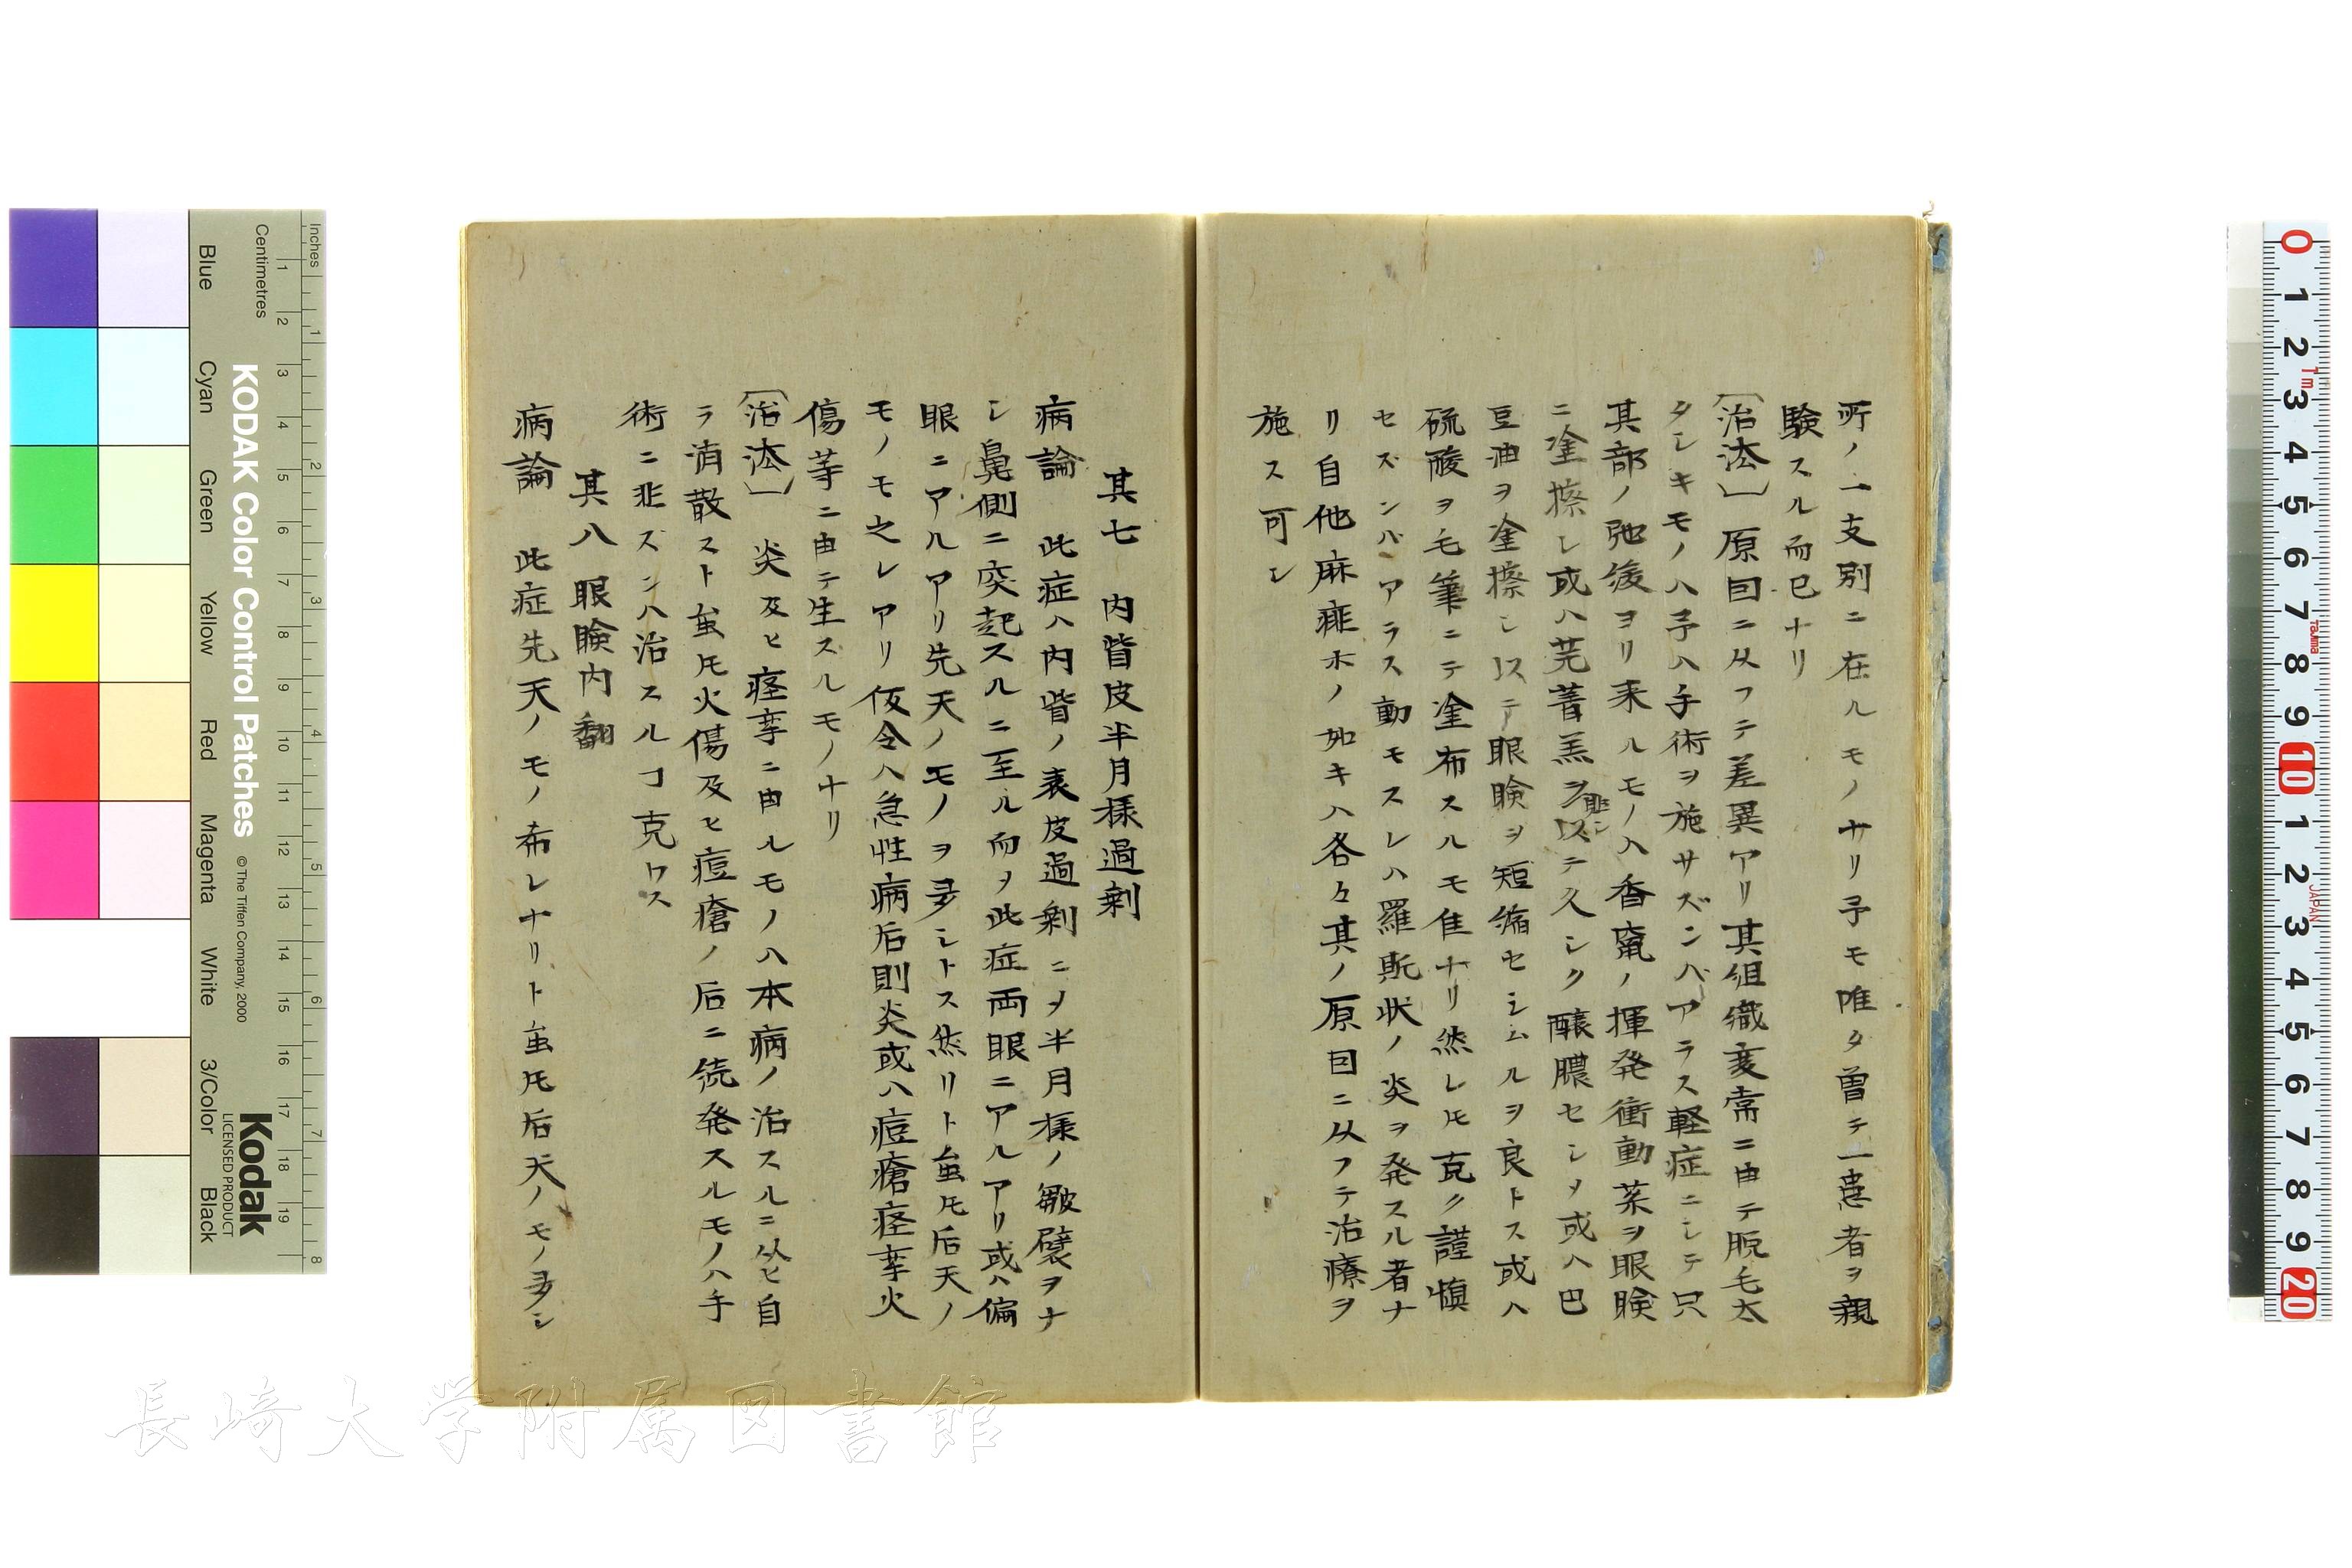 所ノ一支別ニ在ルモノナリ予モ唯タ曽テ一患者ヲ親
験スル而已ナリ
〔治法〕原因ニ从フテ差異アリ其組織変常ニ由テ脱毛太
タシキモノハ予ハ手術ヲ施サズンバアラス軽症ニシテ只
其部ノ弛緩ヨリ来ルモノハ香竄ノ揮発衝動薬ヲ眼瞼
ニ塗擦シ或ハ芫菁羔ヲ貼シ以テ久シク醸膿セシメ或ハ巴
豆油ヲ塗擦シ以テ眼瞼ヲ短縮セシムルヲ良トス或ハ
硫酸ヲ毛筆ニテ塗布スルモ佳ナリ然レ𪜈克ク謹慎
セズンバアラス動モスレハ羅斯状ノ炎ヲ発スル者ナ
リ自他麻痺ホノ如キハ各々其ノ原因ニ从フテ治療ヲ
施ス可シ
其七 内眥皮半月様過剰
病論 此症ハ内眥ノ表皮過剰ニメ半月様ノ皺襞ヲナ
シ鼻側ニ突起スルニ至ル而メ此症両眼ニアルアリ或ハ偏
眼ニアルアリ先天ノモノヲ多シトス然リト虽𪜈后天ノ
モノモ之レアリ仮令ハ急性病后則炎或ハ痘瘡痙挛火
傷等ニ由テ生スルモノナリ
〔治法〕 炎及ヒ痙挛ニ由ルモノハ本病ノ治スルニ从ヒ自
ラ消散スト虽𪜈火傷及ヒ痘瘡ノ后ニ続発スルモノハ手
術ニ非ズンハ治スルヿ克ワス
其八 眼瞼内翻
病論 此症先天ノモノ希レナリト虽𪜈后天ノモノ多シ
KODAK Color Control Patches
© The Tiffen Company, 2000
Kodak
LICENSED PRODUCT
Inches
Centimetres
Blue
Cyan
Green
Yellow
Red
Magenta
White
3/Color
Black
長崎大学附属図書館